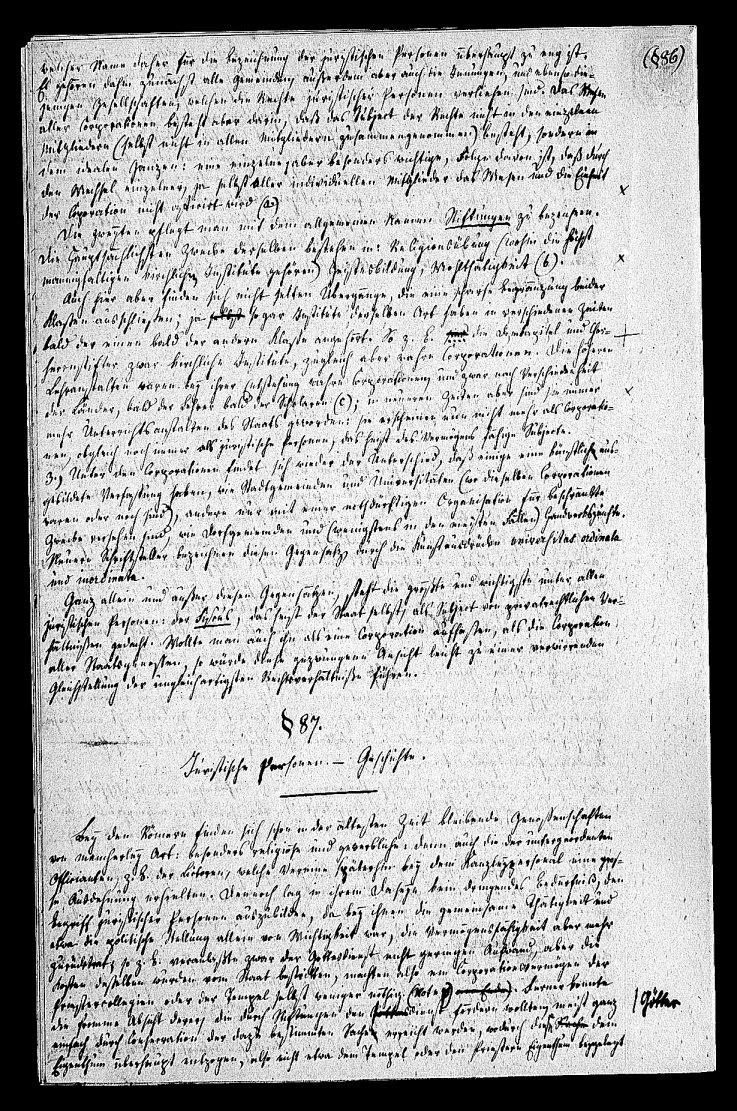 (§86)
welcher Name daher für die Bezeichnung der juristischen Personen überhaupt zu eng ist.
Es gehören dahin zunächst alle Gemeinden, außerdem aber auch die Innungen, und ebenso die-
jenigen Gesellschaften, welchen die Rechte juristischer Personen verliehen sind. Das Wesen
aller Corporationen besteht aber darin, daß das Subject der Rechte nicht in den einzelnen
Mitgliedern (selbst nicht in allen Mitgliedern zusammengenommen) besteht, sondern in
dem idealen Ganzen: eine einzelne, aber besonders wichtige, Folge davon ist, daß durch
den Wechsel einzelner, ja selbst aller individuellen Mitglieder das Wesen und die Einheit
der Corporation nicht afficirt wird (a).
Die zweyten pflegt man mit dem allgemeinen Namen Stiftungen zu bezeichnen.
Die hauptsächlichsten Zwecke derselben bestehen in: Religionsübung (wohin die höchst
mannigfaltigen kirchlichen Institute gehören) Geistesbildung, Wohlthätigkeit (b).
Auch hier aber finden sich nicht selten Übergänge, die eine scharfe Begränzung beider
Klassen ausschließen; ja selbst sogar Institute derselben Art haben in verschiedenen Zeiten
bald der einen bald der andern Klasse angehört. So z. B. sind die Domkapitel und Chor-
herrenstifter zwar kirchliche Institute, zugleich aber wahre Corporationen. Die höheren
Lehranstalten waren bey ihrer Entstehung wahre Corporationen, und zwar nach Verschiedenheit
der Länder, bald der Lehrer bald der Scholaren (c); in neueren Zeiten aber sind sie immer
mehr Unterrichtsanstalten des Staats geworden: sie erscheinen nun nicht mehr als Corporatio-
nen, obgleich noch immer als juristische Personen, das heißt des Vermögens fähige Subjecte.
3.) Unter den Corporationen findet sich wieder der Unterschied, daß einige eine künstlich aus-
gebildete Verfassung haben, wie Stadtgemeinden und Universitäten (wo dieselben Corporationen
waren oder noch sind), andere nur mit einer nothdürftigen Organisation für beschränkte
Zwecke versehen sind, wie Dorfgemeinden und (wenigstens in den meisten Fällen) Handwerkszünfte.
Neuere Schriftsteller bezeichnen diesen Gegensatz durch die Kunstausdrücke universitas ordinata
und inordinata.
Ganz allein und außer diesen Gegensätzen, steht die größte und wichtigste unter allen
juristischen Personen: der Fiscus, das heißt der Staat selbst als Subject von privatrechtlichen Ver-
hältnissen gedacht. Wollte man auch ihn als eine Corporation auffassen, als die Corporation
aller Staatsgenossen, so würde diese gezwungene Ansicht leicht zu einer verwirrenden
Gleichstellung der ungleichartigsten Rechtsverhältnisse führen.
§87.
Juristische Personen. — Geschichte.
Bey den Römern finden sich schon in der ältesten Zeit bleibende Genossenschaften
von mancherley Art: besonders religiöse und gewerbliche: dann auch die der untergeordneten
Officianten, z. B. der Lictoren, welche Vereine späterhin bey dem Kanzleypersonal eine gros-
se Ausdehnung erhielten. Dennoch lag in ihrem Daseyn kein dringendes Bedürfniß, den
Begriff juristischer Personen auszubilden, da bey ihnen die gemeinsame Thätigkeit und
etwa die politische Stellung allein von Wichtigkeit war, die Vermögensfähigkeit aber mehr
zurücktrat; so z. B. veranlaßte zwar der Gottesdienst nicht geringen Aufwand, aber die
Kosten desselben wurden vom Staat bestritten, machten also ein Corporationsvermögen der
Priestercollegien oder der Tempel selbst weniger nöthig. Ferner konnte
die fromme Absicht derer, die durch Stiftungen den dienst fördern wollten, meist ganz
Götter
einfach durch Consecration der dazu bestimmten Sachen erreicht werden, wodurch diese dem
Eigenthum überhaupt entzogen, also nicht etwa dem Tempel oder den Priestern Eigenthum beygelegt